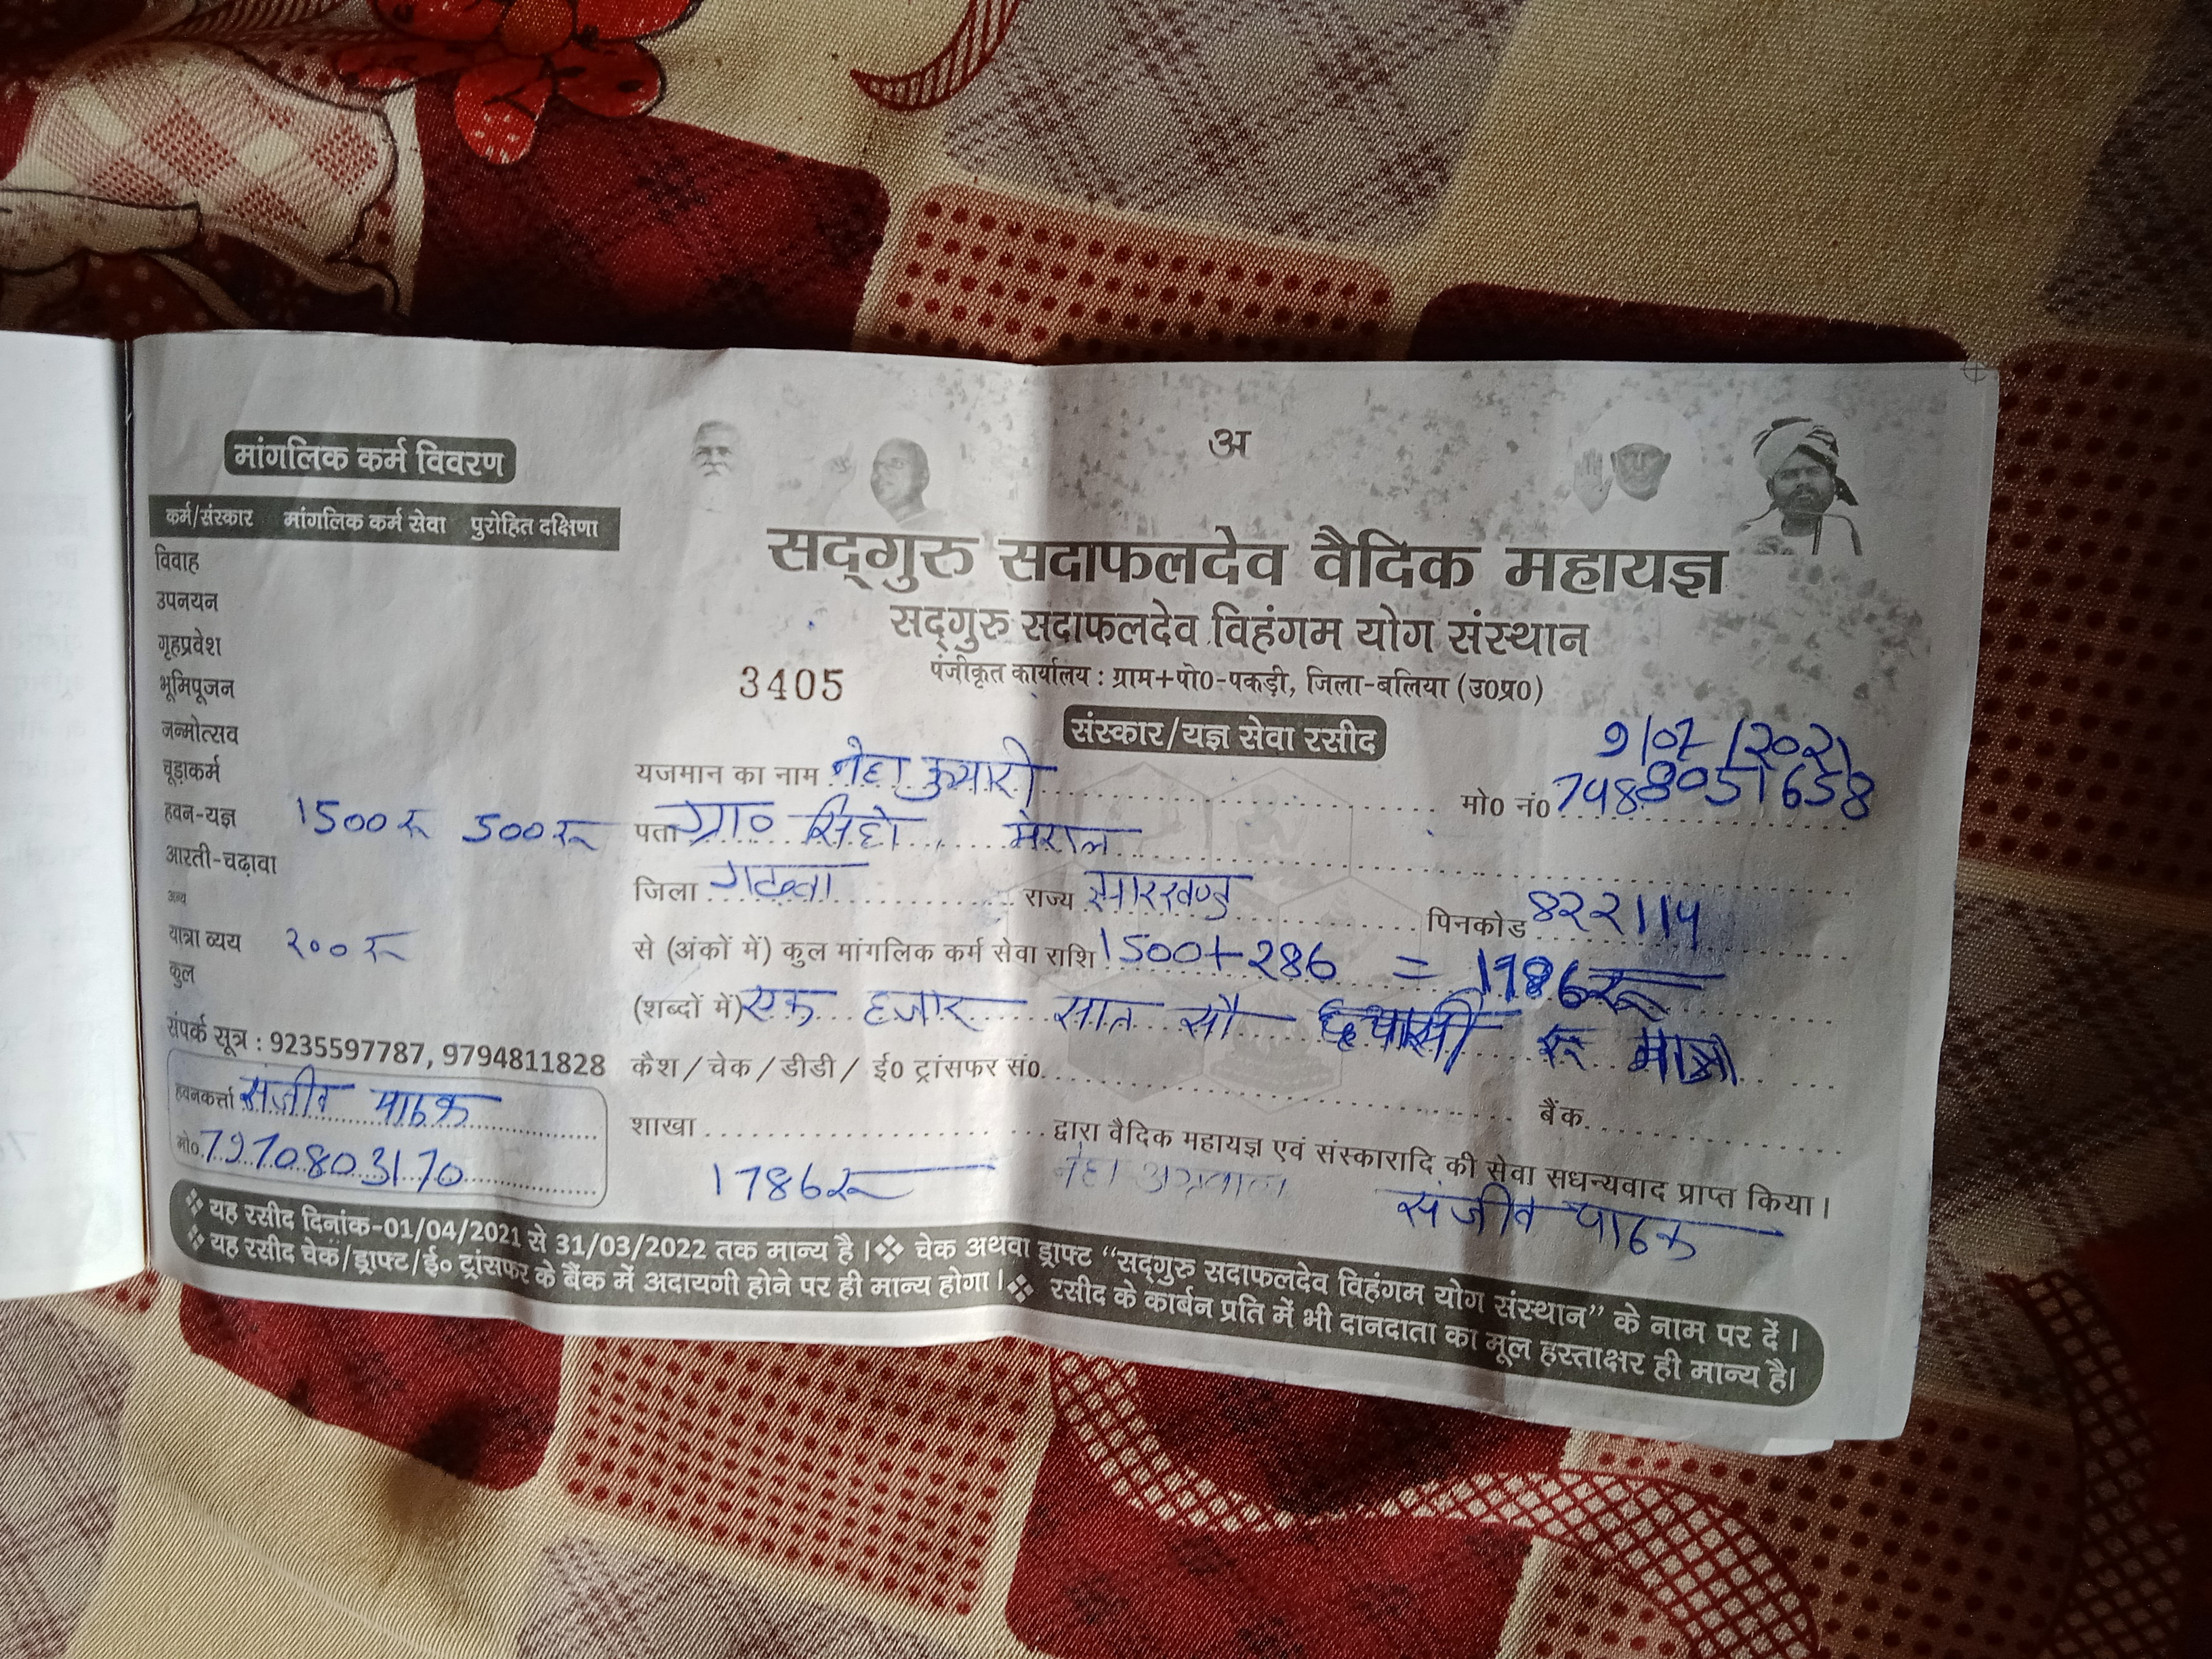 मांगलिक कर्म विवरण
कर्म/संस्कार मांगलिक कर्म सेवा पुरोहित दक्षिणा
विवाह
उपनयन
गृहप्रवेश
भूमिपूजन
जन्मोत्सव
चूड़ाकर्म
हवन-यज्ञ 1500रू 500रू
आरती-चढ़ावा
अन्य
यात्रा व्यय २००रू
कुल
संपर्क सूत्र : 9235597787, 9794811828
हवनकर्त्ता संजीव पाठक
मो० 7970803170
अ
सद्गुरु सदाफलदेव वैदिक महायज्ञ
सद्गुरु सदाफलदेव विहंगम योग संस्थान
3405 पंजीकृत कार्यालय : ग्राम+पो०-पकड़ी, जिला-बलिया (उ०प्र०)
संस्कार/यज्ञ सेवा रसीद
यजमान का नाम नेहा कुमारी मो० नं०
पता ग्रा० मेराल
जिला गढवा राज्य झारखण्ड पिनकोड 822114
से (अंकों में) कुल मांगलिक कर्म सेवा राशि 1500+286 = 1786रू
(शब्दों में) एक हजार सात सौ छयासी रू मात्र
कैश / चेक / डीडी / ई० ट्रांसफर सं० बैंक
शाखा द्वारा वैदिक महायज्ञ एवं संस्कारादि की सेवा सधन्यवाद प्राप्त किया।
1786रू नेहा संजीव पाठक
❖ यह रसीद दिनांक-01/04/2021 से 31/03/2022 तक मान्य है। ❖ चेक अथवा ड्राफ्ट “सद्गुरु सदाफलदेव विहंगम योग संस्थान” के नाम पर दें।
❖ यह रसीद चेक/ड्राफ्ट/ई० ट्रांसफर के बैंक में अदायगी होने पर ही मान्य होगा। ❖ रसीद के कार्बन प्रति में भी दानदाता का मूल हस्ताक्षर ही मान्य है।